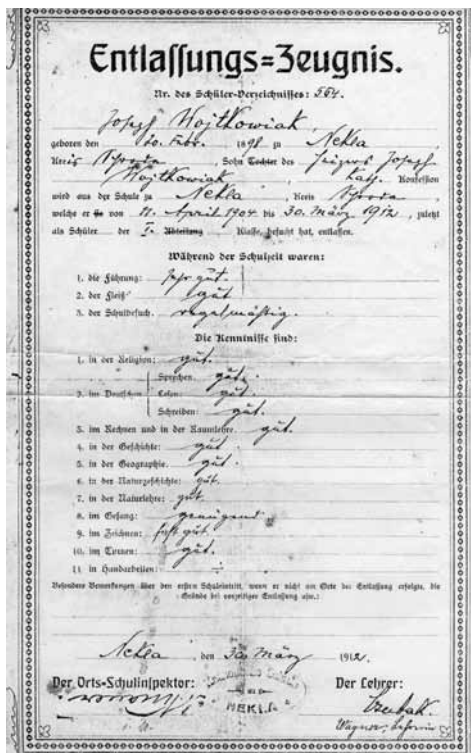 Entlassungs=Zeugnis.
Nr. des Schüler-Verzeichnisses: 564.
Joseph Wojtkowiak,
geboren den 20. Febr. 1898 zu Nekla
Kreis Schroda, Sohn Tochter des Joseph
Wojtkowiak, Kath. Konfession
wird aus der Schule zu Nekla, Kreis Schroda,
welche er sie von 11. April 1904 bis 30. März 1912, zuletzt
als Schüler der I. Abteilung Klasse, besucht hat, entlassen.
Während der Schulzeit waren:
1. die Führung: sehr gut.
2. der Fleiß: gut
3. der Schulbesuch: regelmäßig.
Die Kenntnisse sind:
1. in der Religion: gut.
Sprechen: gut.
2. im Deutschen Lesen: gut.
Schreiben: gut.
3. im Rechnen und in der Raumlehre: gut.
4. in der Geschichte: gut.
5. in der Geographie: gut.
6. in der Naturgeschichte: gut.
7. in der Naturlehre: gut.
8. im Gesang: genügend.
9. im Zeichnen: fast gut.
10. im Turnen: gut.
11. in Handarbeiten: ÷
Besondere Bemerkungen über den ersten Schuleintritt, wenn er nicht am Orte der Entlassung erfolgte, die
Gründe bei vorzeitiger Entlassung usw.:
Nekla, den 30. März 1912.
Der Orts-Schulinspektor:
Der Lehrer:
NEKLA
Wagner, Lehrerin